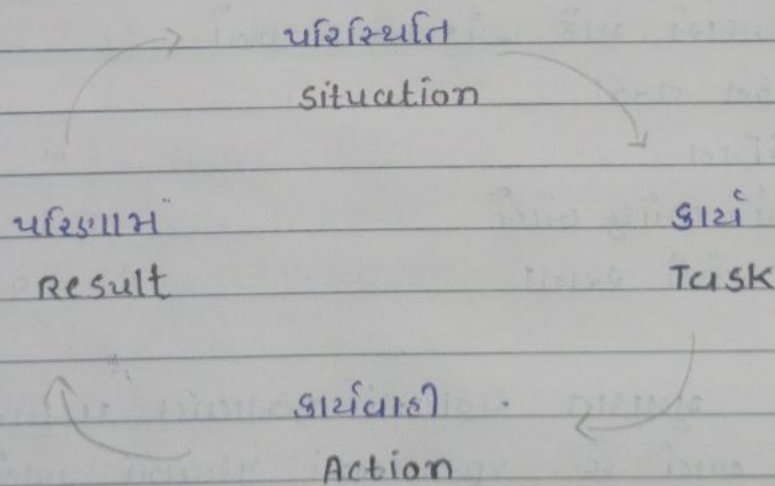 પરિસ્થિતિ
Situation
પરિણામ
Result
કાર્ય
Task
કાર્યવાહી
Action